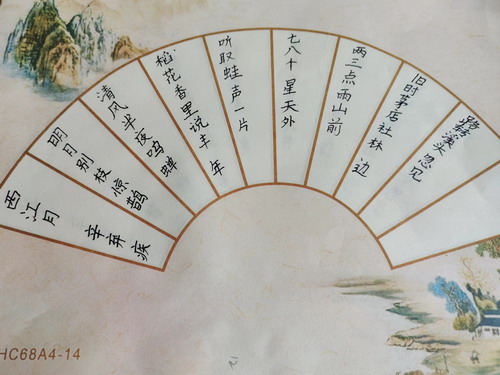 西江月 辛弃疾
明月别枝惊鹊
清风半夜鸣蝉
稻花香里说丰年
听取蛙声一片
七八十星天外
两三点雨山前
旧时茅店社林边
路转溪头忽见
HC68A4-14